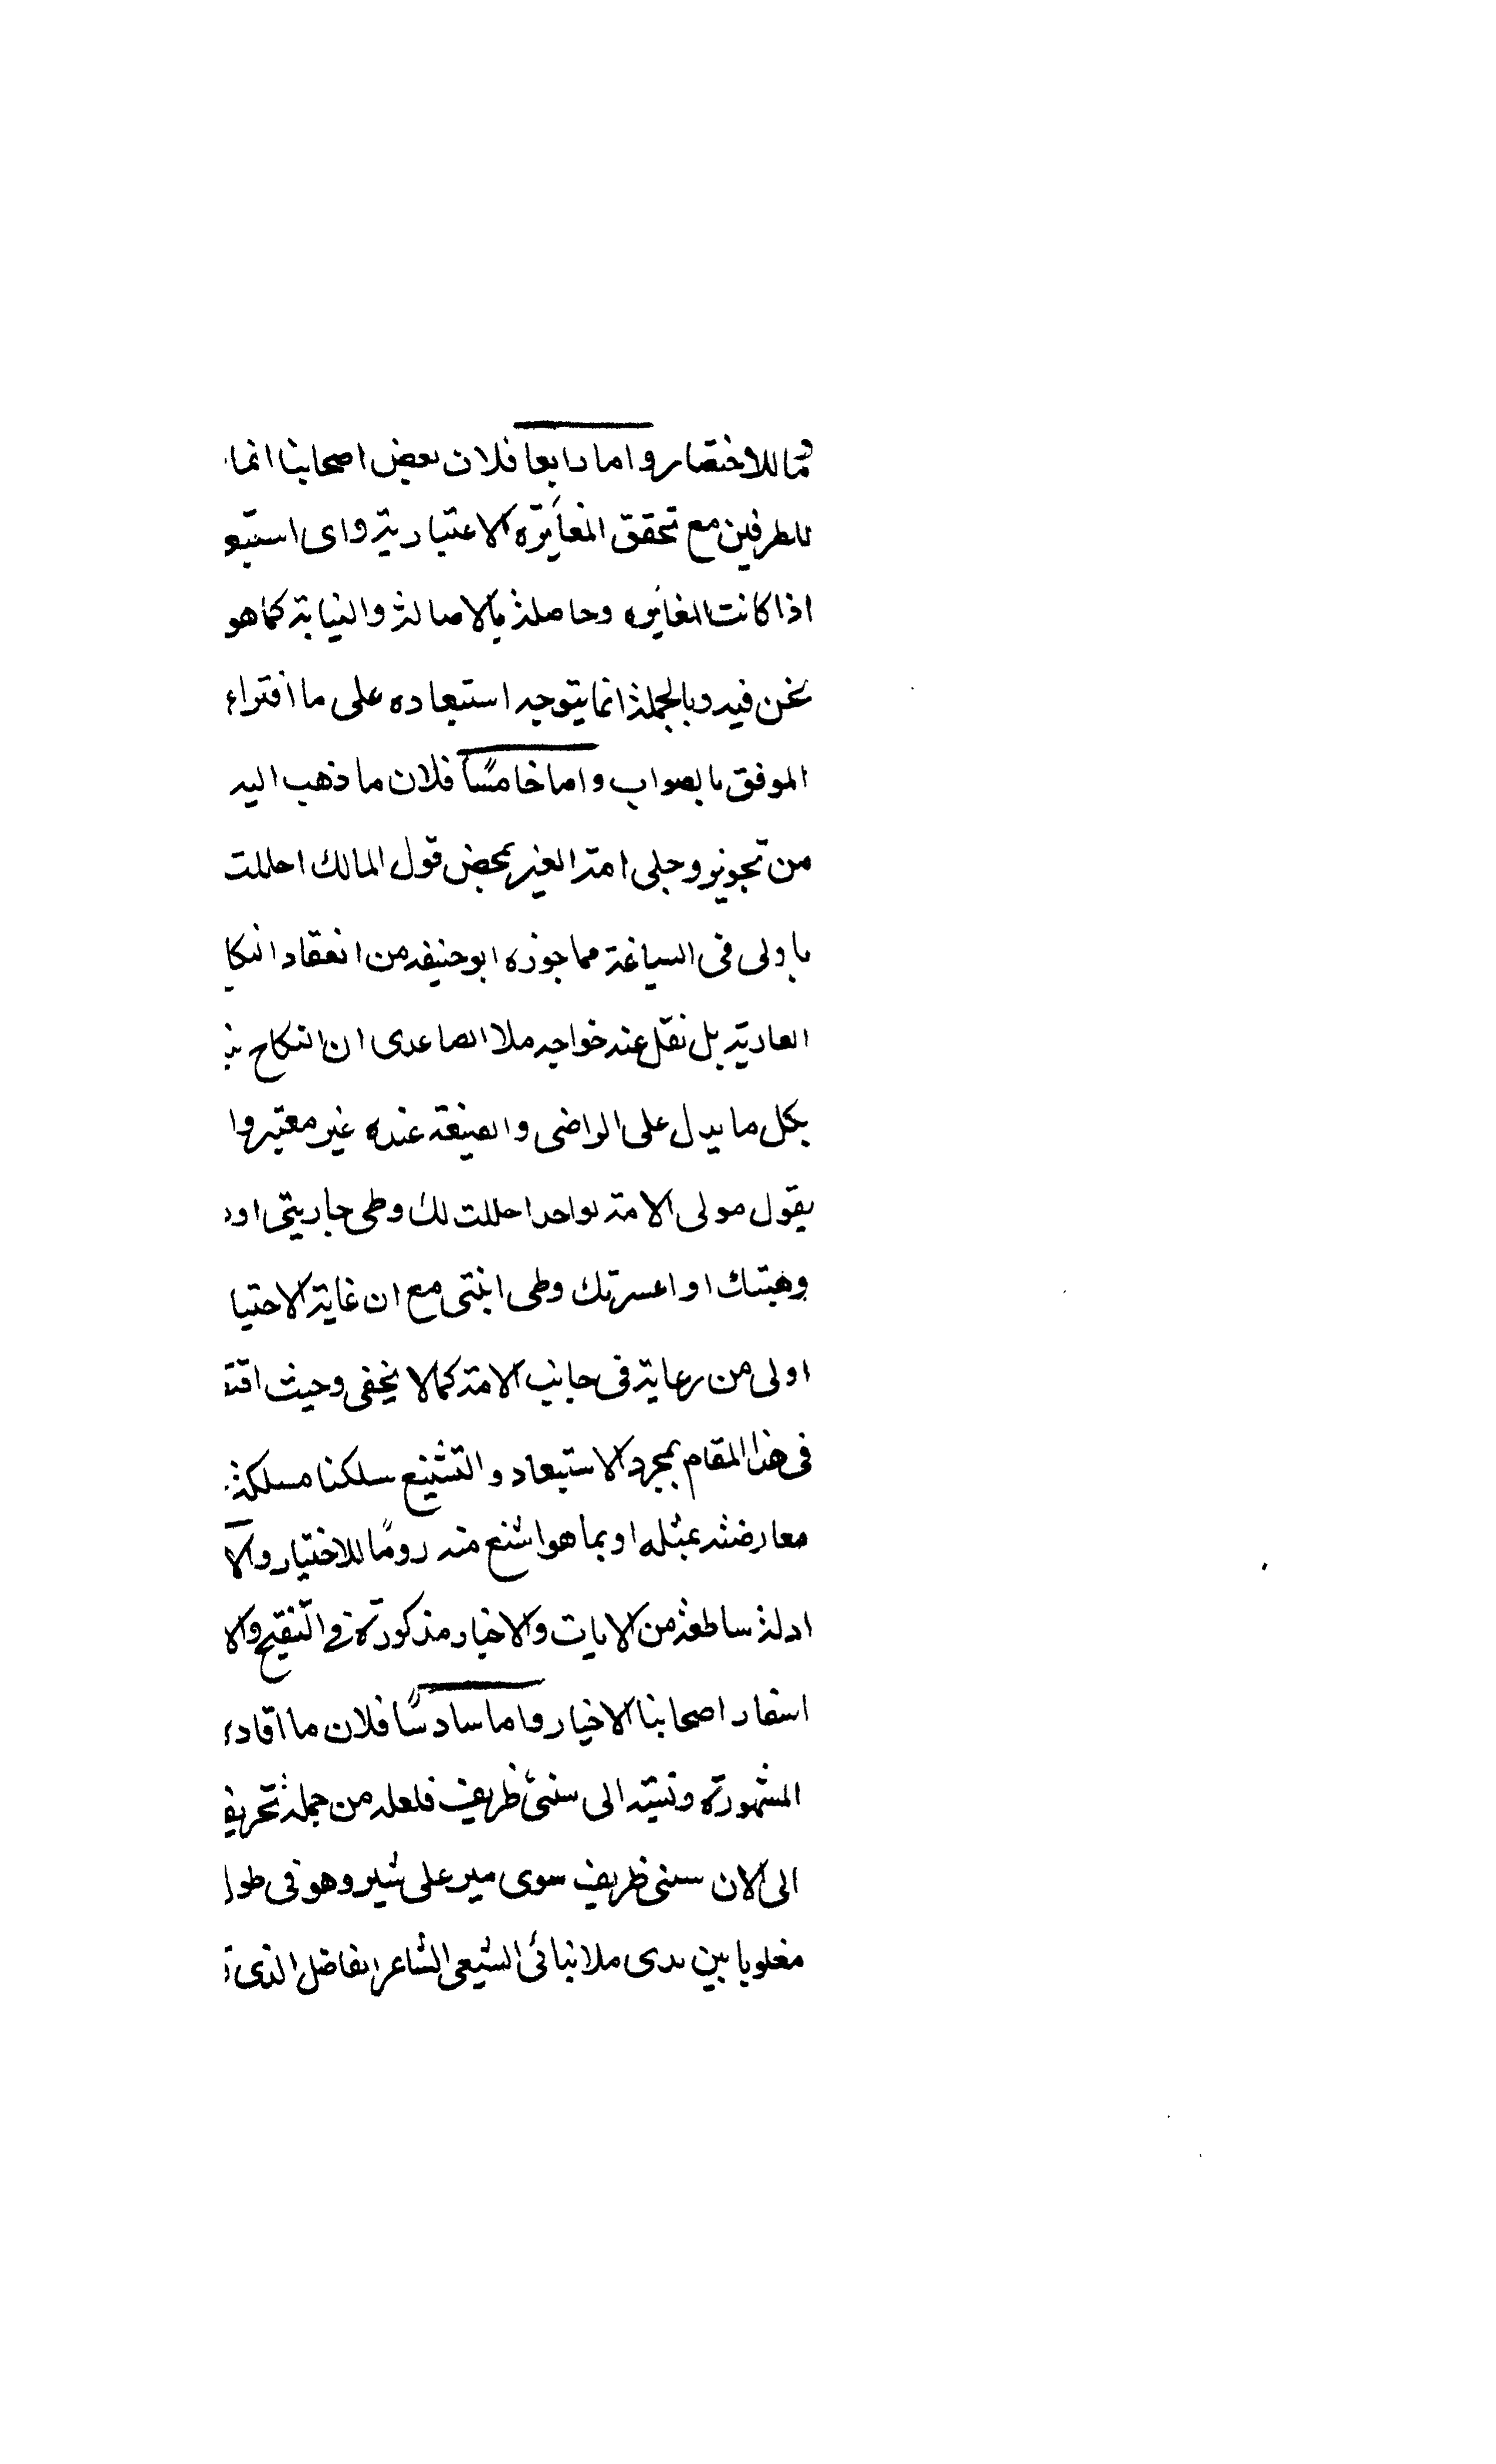 للاختصار واما رابعا فلان بعض اصحابنا انما
للطرفين مع تحقق المغايرة الاعتبارية واى
اذا كانت المغايره وحاصلة بالاصالة والنيابة كما هو
نحن فيه وبالجملة انما يتوجه استبعاده على ما افتراء
الموفق بالصواب واما خامسًا فلان ما ذهب اليه
من تجويز وطى امة الغير بمحض قول المالك احللت
باولى فى السياغة مما جوزه ابو حنيفه من انعقاد
العارية بل نقل عنه خواجه ملا الصاعدى ان النكاح
بكل ما يدل على الراضى والصيغة عنده غير معتبر وا
يقول مولى الامة لواحد احللت لك وطى جاريتى او
وهبتك او اعسرتك وطى ابنتى مع ان غاية الاحتيا
اولى من رعاية فى جانب الامة كما لا يخفى وحيث
فى هذا المقام بمجرد الاستبعاد والتشنيع سلكنا مسلكة
معارضته بمثله او بما هو اشنع منه رومًا للاختيار والا
ادلة ساطعة من الايات والاخبار مذكورة فى التنقيح والا
اسفار اصحابنا الاخيار واما سادسًا فلان ما افاد
المشهورة ونسبته الى سنى ظريف فلعله من جملة
الى الان سنى ظريف سوى مير على شير وهو فى طول
مغلوبا بين يدى ملا بنائى الشيعى الشاعر الفاضل الذى